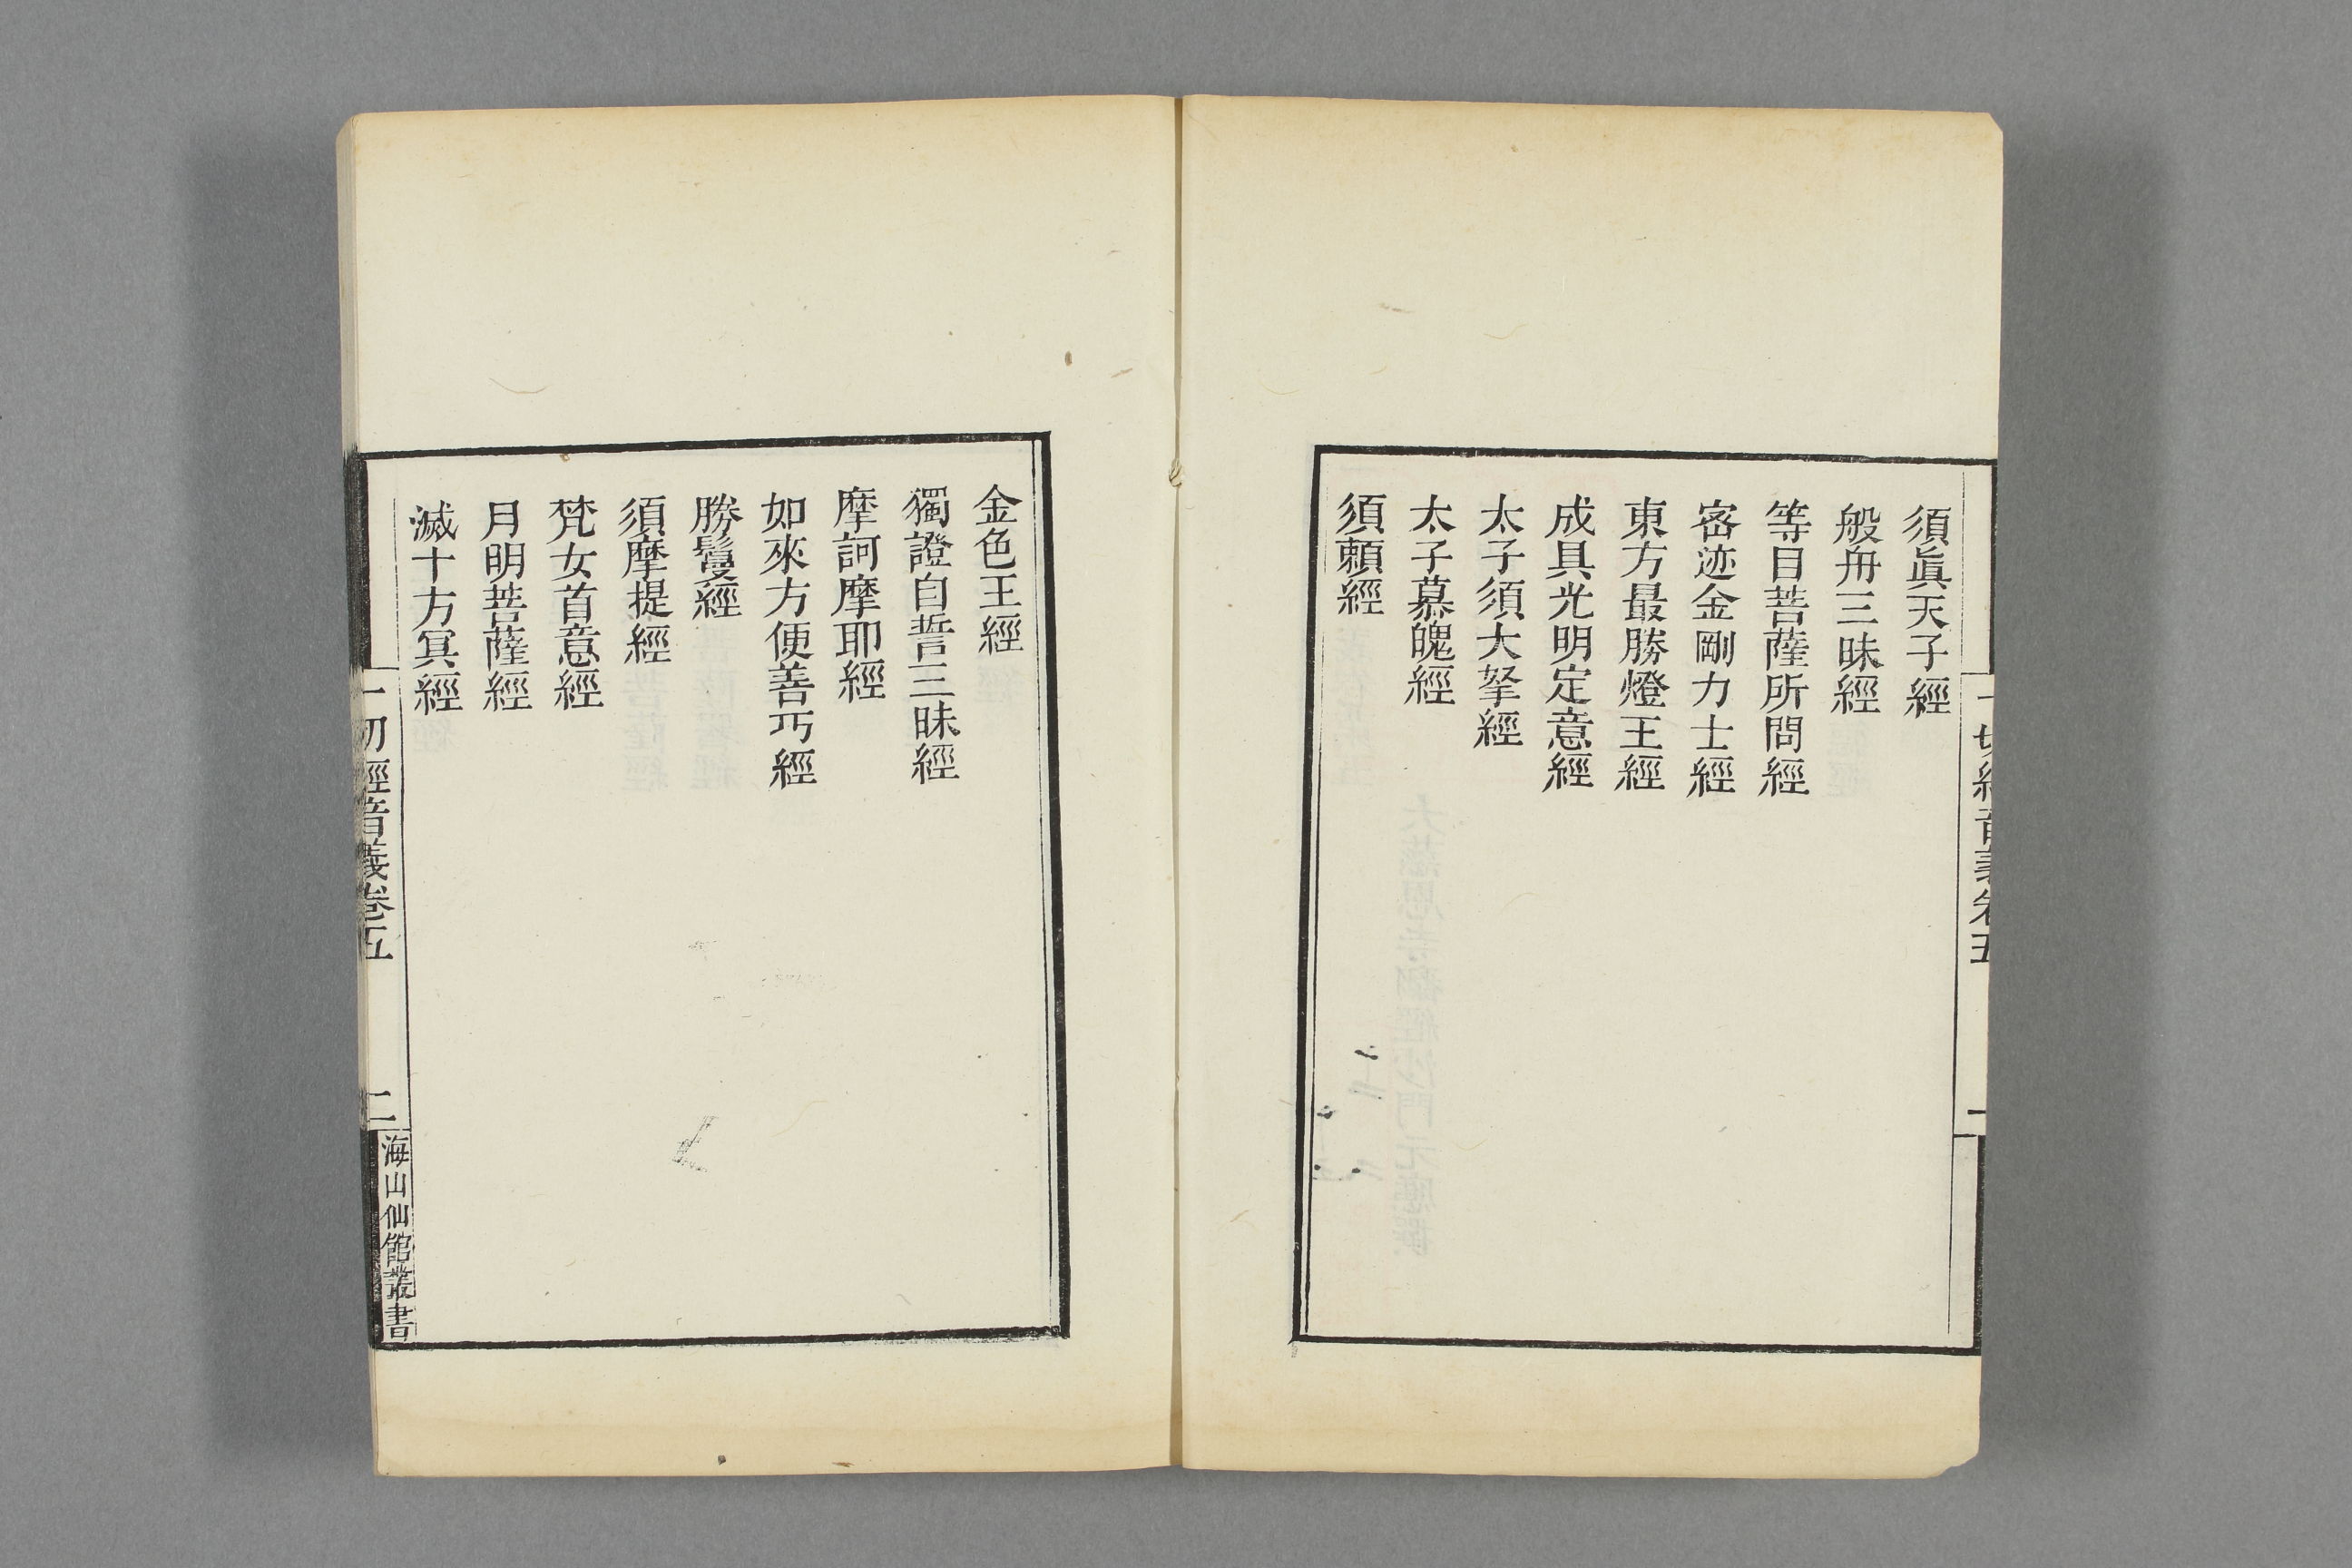 須眞天子經
般舟三昧經
等目菩薩所問經
宻迹金剛力士經
東方最勝燈王經
成具光明定意經
太子須大拏經
太子慕魄經
須賴經
金色王經
獨證自誓三昧經
摩訶摩耶經
如來方便善巧經
勝鬘經
須摩提經
梵女首意經
月明菩薩經
滅十方冥經
一切經音義卷五
二
海山仙館叢書